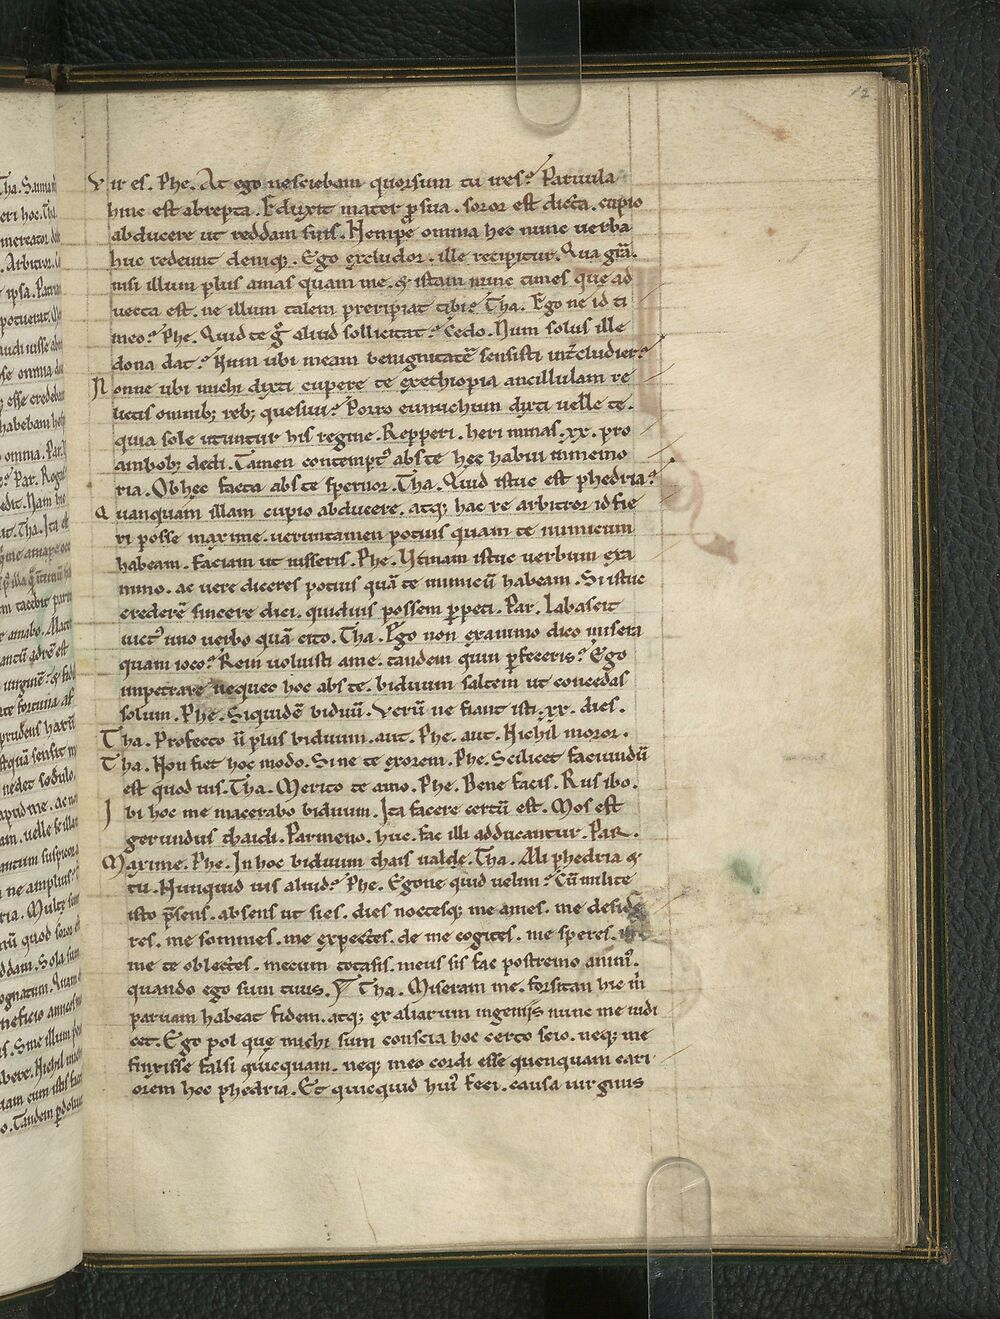 12
Vir es. Phe. At ego nesciebam quorsum tu ires? Paruula
hinc est abrepta. Eduxit mater ꝓ sua. soror est dicta. cupio
abducere ut reddam suis. Nempe omnia hec nunc uerba
huc redeunt deniqꝫ. Ego excludor. ille recipitur. Qua grā.
nisi illum plus amas quam me. & istam nunc times que ad
uecta est. ne illum talem preripiat tibi? Tha. Ego ne id ti
meo? Phe. Quid te gͦ aliud sollicitat? Cedo. Num solus ille
dona dat? Num ubi meam benignitatē sensisti int̄cludier?
Nonne ubi michi dixti cupere te exethiopia ancillulam re
lictis omnibꝫ rebꝫ quesiui? Porro eunuchum dixti uelle te.
quia sole utuntur his regine. Repperi. heri minas .xx. pro
ambobꝫ dedi. Tamen contemptꝰ abs te hec habui inmemo
ria. Ob hec facta abs te spernor. Tha. Quid istuc est phedria?
Quanquam illam cupio abducere. atqꝫ hac re arbitror id fie
ri posse maxime. ueruntamen potius quam te inimicum
habeam. faciam ut iusseris. Phe. Utinam istuc uerbum exa
nimo. ac uere diceres potius quā te inimicū habeam. Si istuc
crederē sincere dici. quiduis possem ꝑpeti. Par. Labascit
uictꝰ uno uerbo quā cito. Tha. Ego non exanimo dico misera
quam ioco? Rem uoluisti a me. tandem quin ꝑfeceris? Ego
impetrare nequeo hoc abs te. biduum saltem ut concedas
solum. Phe. Siquidē biduū. Verū ne fiant isti .xx. dies.
Tha. Profecto ū plus biduum. aut. Phe. aut. Nichil moror.
Tha. Non fiet hoc modo. Sine te exorem. Phe. Scilicet faciundū
est quod uis. Tha. Merito te amo. Phe. Bene facis. Rus ibo.
Ibi hoc me macerabo biduum. Ita facere certū est. Mos est
gerundus thaidi. Parmeno. huc. fac illi adducantur. PaR.
Maxime. Phe. In hoc biduum thais ualdę. Tha. Mi phedria &
tu. Nunquid uis aliud? Phe. Egone quid uelim? Cū milite
isto p̄sens. absens ut sies. dies noctesqꝫ me ames. me deside
res. me somnies. me expectes. de me cogites. me speres.
me te oblectes. mecum tota sis. meus sis fac postremo animꝰ.
quando ego sum tuus. Tha. Miseram me. forsitan hic m̄
paruam habeat fidem. atqꝫ ex aliarum ingeniis nunc me iudi
cet. Ego pol que michi sum conscia hoc certo scio. neqꝫ me
finxisse falsi quicquam. neqꝫ meo cordi esse quenquam cari
orem hoc phedria. Et quicquid huiꝰ feci. causa uirginis